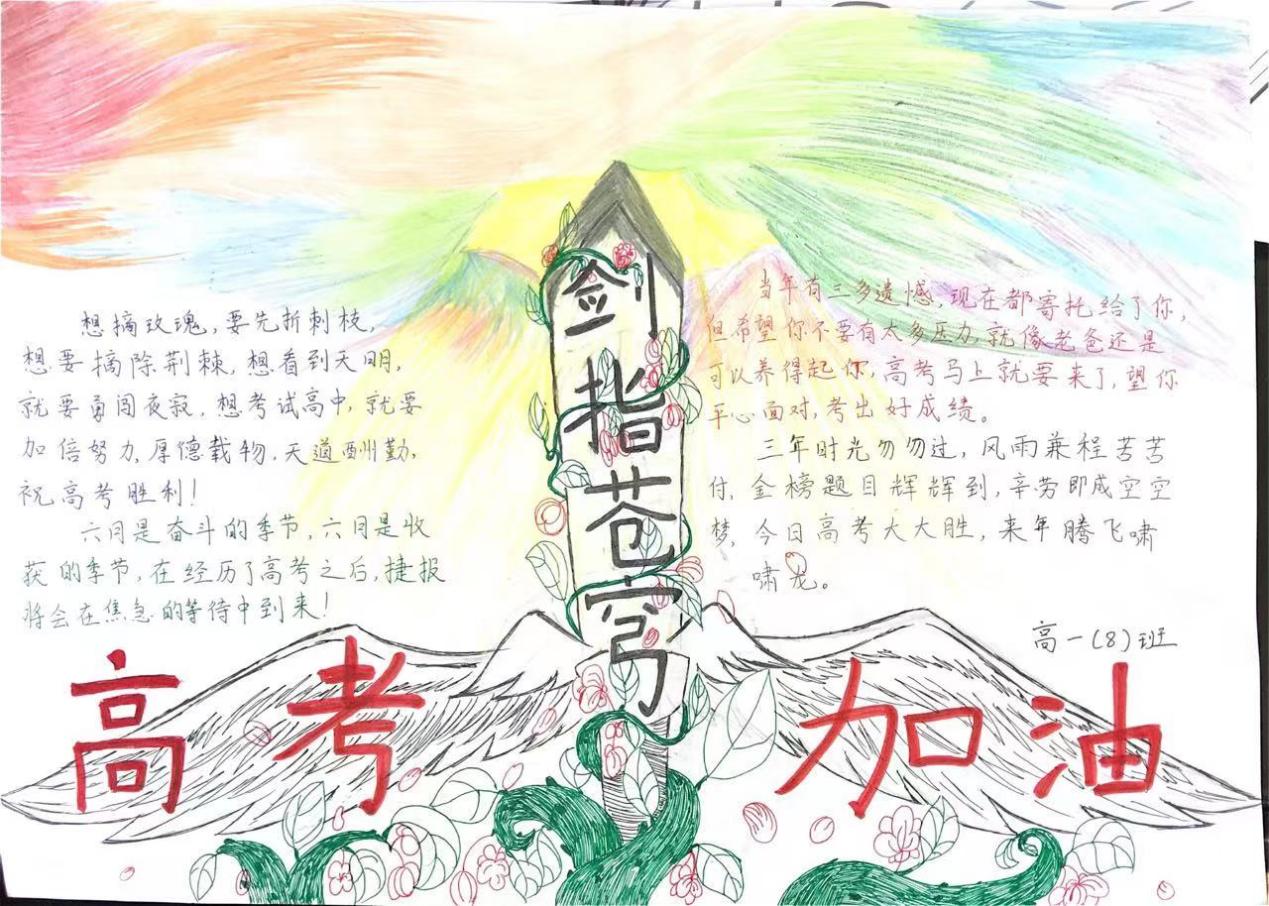 剑指苍穹
想摘玫瑰,要先折刺枝,
想要摘除荆棘,想看到天明,
就要勇闯夜寂,想考试高中,就要
加倍努力,厚德载物,天道酬勤,
祝高考胜利!
六月是奋斗的季节,六月是收
获的季节,在经历了高考之后,捷报
将会在焦急的等待中到来!
当年有三多遗憾,现在都寄托给了你,
但希望你不要有太多压力,就像老爸还是
可以养得起你,高考马上就要来了,望你
平心面对,考出好成绩。
三年时光匆匆过,风雨兼程苦苦
付,金榜题目辉辉到,辛劳即成空空
梦,今日高考大大胜,来年腾飞啸
啸龙。
高一(8)班
高考加油